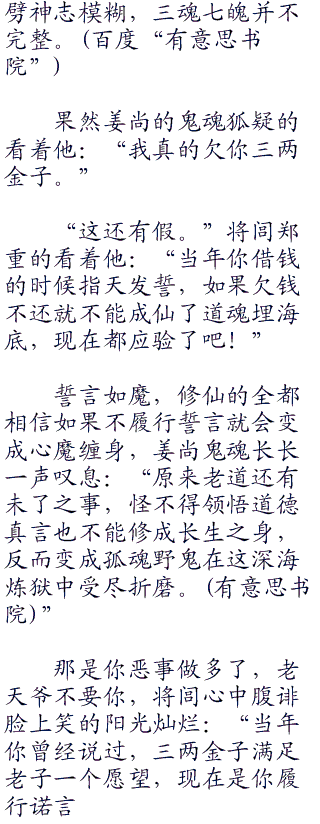 劈神志模糊，三魂七魄并不
完整。(百度“有意思书
院”)
果然姜尚的鬼魂狐疑的
看着他：“我真的欠你三两
金子。”
“这还有假。”将闾郑
重的看着他：“当年你借钱
的时候指天发誓，如果欠钱
不还就不能成仙了道魂埋海
底，现在都应验了吧！”
誓言如魔，修仙的全都
相信如果不履行誓言就会变
成心魔缠身，姜尚鬼魂长长
一声叹息：“原来老道还有
未了之事，怪不得领悟道德
真言也不能修成长生之身，
反而变成孤魂野鬼在这深海
炼狱中受尽折磨。(有意思书
院)”
那是你恶事做多了，老
天爷不要你，将闾心中腹诽
脸上笑的阳光灿烂：“当年
你曾经说过，三两金子满足
老子一个愿望，现在是你履
行诺言